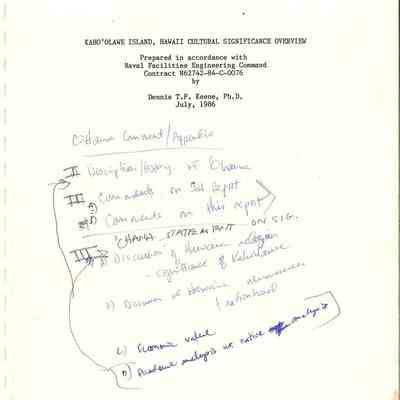 KAHO'OLAWE ISLAND, HAWAII CULTURAL SIGNIFICANCE OVERVIEW
Prepared in accordance with
Naval Facilities Engineering Command
Contract N62742-84-C-0076
by
Dennis T.P. Keene, Ph.D.
July, 1986
Ohana Comment/Appendix
II Description/History of Ohana
III Comments on Report
Comments on this report
'OHANA STATEMENT ON SIG.
III a) Discussion of Hawaiian religion
- significance of Kaho'olawe
b) Discussion of Hawaiian
nationhood
c) Economic value
D) Academic analysis vs. native analysis